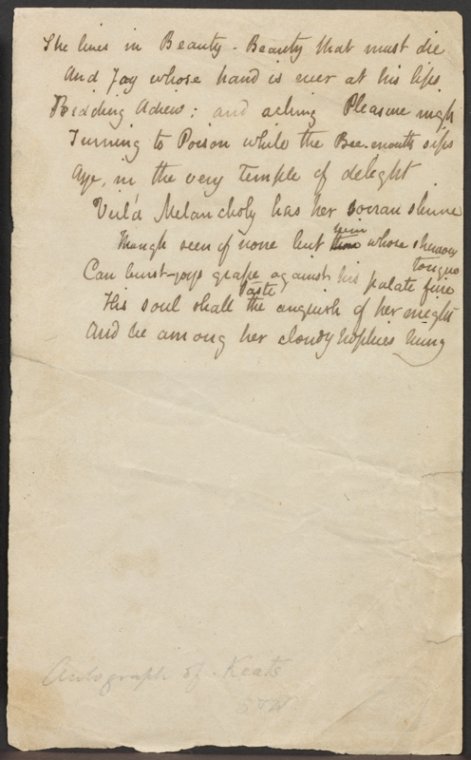 She lives in Beauty - Beauty that must die
And Joy whose hand is ever at his lips
Bidding Adieu; and aching Pleasure nigh
Turning to Poison while the Bee-mouth sips
Aye, in the very temple of delight
Veil'd Melancholy has her sovran shrine
Though seen of none but him whose strenuous tongue
Can burst joys grape against his palate fine
His soul shall taste the anguish of her might
And be among her cloudy trophies hung
Autograph of Keats